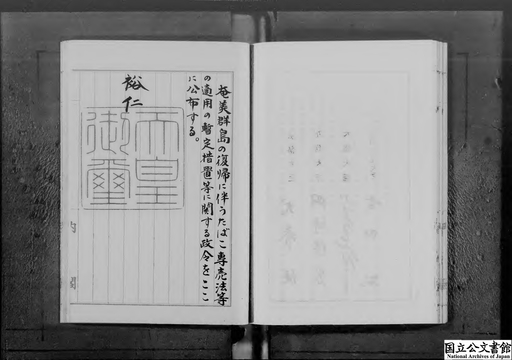 奄美群島の復帰に伴うたばこ専売法等
の適用の暫定措置等に関する政令をここ
に公布する。
裕仁
天皇
御璽
国立公文書館
National Archives of Japan